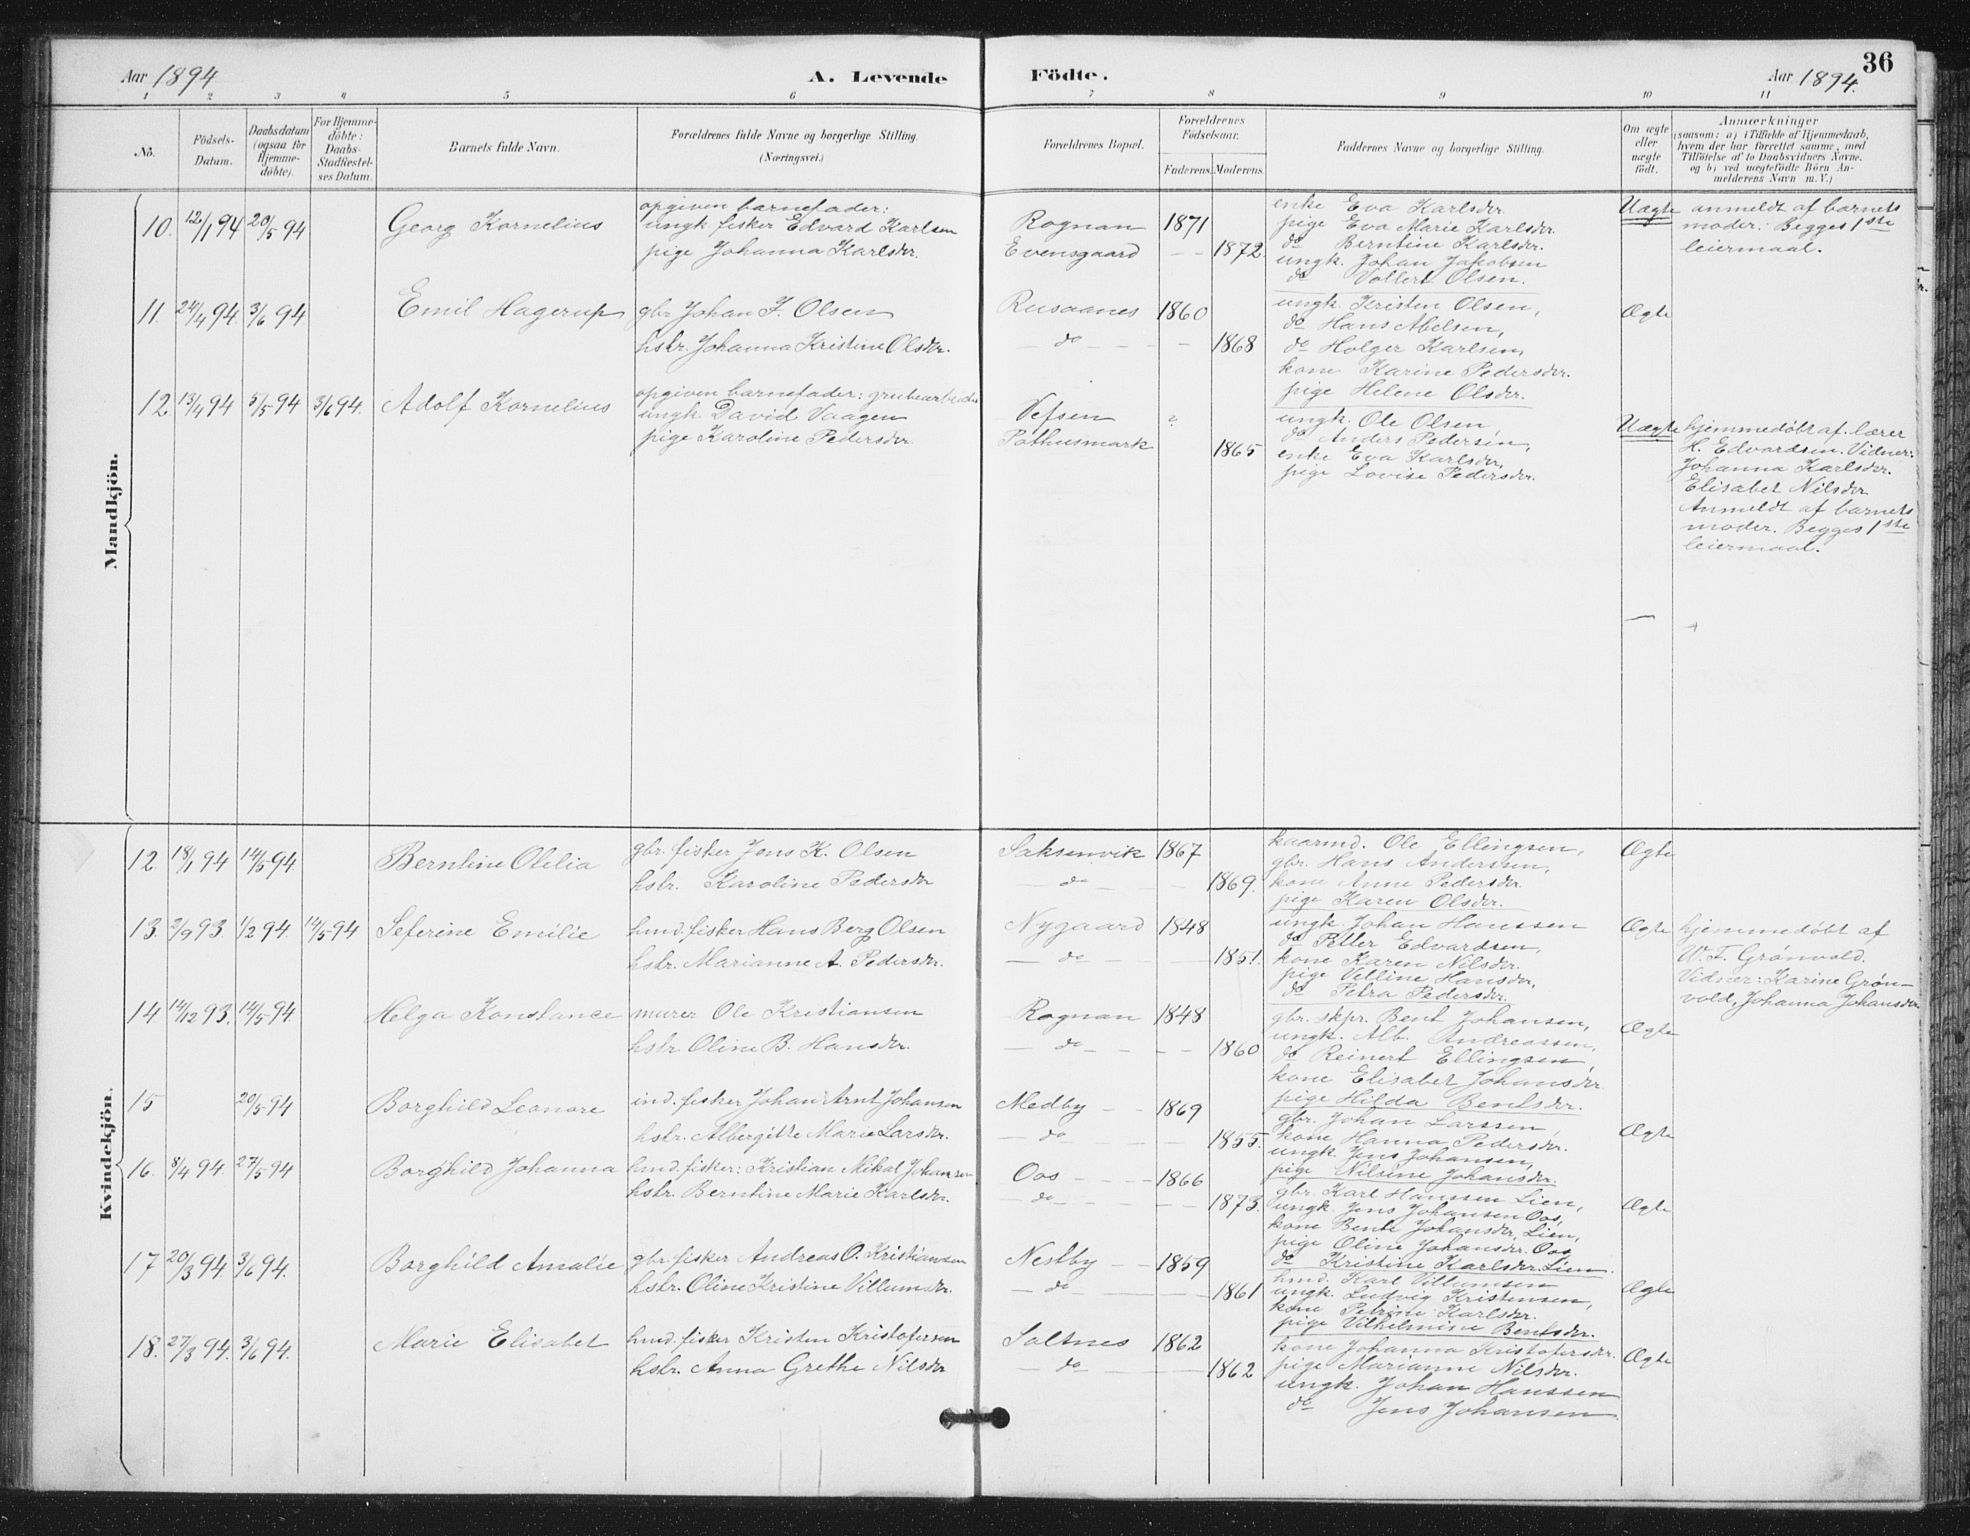 Aar 1894
A. Levende
Födte.
Aar 1894.
36
1 2 3 4 5 6 7 8 9 10 11
No.
Födsels-
Datum.
Daabsdatum
(ogsaa for
Hjemme-
döbte).
For Hjemme-
döbte:
Daabs-
Stadfæstel-
ses Datum.
Barnets fulde Navn.
Forældrenes fulde Navne og borgerlige Stilling.
(Næringsvei.)
Forældrenes Bopæl.
Forældrenes
Födselsaar.
Faderens. Moderens.
Faddernes Navne og borgerlige Stilling.
Om ægte
eller
uægte
födt.
Anmærkninger
(saasom: a) i Tilfælde af Hjemmedaab,
hvem der har forrettet samme, med
Tilföielse af to Daabsvidners Navne,
og b) ved uægtefödte Börn An-
melderens Navn m. V.)
Mandkjön.
10. 12/1 94 20/5 94
Georg Kornelius
opgiven barnefader:
ungk. fisker Edvard Karlsen
pige Johanna Karlsdr.
Rognan 1871
Evensgaard 1872.
enke Eva Karlsdr.
pige Eva Marie Karlsdr.
do Berntine Karlsdr.
ungk. Johan Jakobsen
do Vollert Olsen.
Uægte
anmeldt af barnets
moder. Begges 1ste
leiermaal.
11. 24/4 94. 3/6 94
Emil Hagerup
gbr. Johan F. Olsen
hstr. Johanna Kristine Olsdr.
Rusaanes 1860
do 1868
ungk. Kristen Olsen,
do Hans Abelsen,
do Holger Karlsen,
kone Karine Pedersdr.
pige Helene Olsdr.
Ægte
12. 13/4 94 5/5 94 3/6 94.
Adolf Kornelius
opgiven barnefader: grubearbeider
ungk. David Vaagen
pige Karoline Pedersdr.
Vefsen ?
Pothusmark 1865
ungk. Ole Olsen,
do Anders Pedersen,
enke Eva Karlsdr,
pige Lovise Pedersdr.
Uægte
hjemmedøbt af lærer
H. Edvardsen. Vidner:
Johanna Karlsdr.
Elisabet Nilsdr
Anmeldt af barnets
moder. Begges 1ste
leiermaal.
Kvindekjön.
12. 18/1 94 14/5 94.
Berntine Otelia
gbr. fisker Jens K. Olsen
hstr. Karoline Pedersdr
Saksenvik 1867
do 1869.
kaarmd. Ole Ellingsen,
gbr. Hans Anderssen,
kone Anne Pedersdr.
pige Karen Olsdr.
Ægte
13. 2/9 93. 1/2 94. 14/5 94
Seferine Emilie
hmd. fisker Hans Berg Olsen
hstr. Marianne A. Pedersdr.
Nygaard 1848
do 1851.
ungk. Johan Hanssen
do Petter Edvardsen,
kone Karen Nilsdr.
pige Velline Hansdr,
do Petra Pedersdr.
Ægte
hjemmedøbt af
W. F. Grønvold.
Vidner: Karine Grøn-
vold, Johanna Johansdr
14 14/12 93. 14/5 94.
Helga Konstance
murer Ole Kristiansen
hstr. Oline B. Hansdr.
Rognan 1848
do 1860
gbr. skpr. Bent Johansen,
ungk. Alb. Andreassen,
do Reinert Ellingsen
kone Elisabet Johansdr
pige Hilda Bentsdr.
Ægte
15 20/5 94
Borghild Leonore
ind. fisker Johan Arnt Johansen
hstr. Albergitte Marie Larsdr.
Medby 1869
do 1855.
gbr. Johan Larssen,
kone Hanna Pedersdr.
ungk. Jens Johansen,
pige Nilsine Johansdr.
Ægte
16. 8/4 94 27/5 94
Borghild Johanna
hmd. fisker: Kristian Mikal Johansen
hstr. Berntine Marie Karlsdr.
Oos 1866
do 1873.
gbr. Karl Hanssen Lien,
ungk. Jens Johansen Oos,
kone Bente Johansdr. Lien,
pige Oline Johansdr. Oos
do Kristine Karlsdr. Lien.
Ægte
17 20/3 94. 3/6 94.
Borghild Amalie
gbr. fisker Andreas O. Kristiansen
hstr. Oline Kristine Villumsdr.
Nestby 1859
do 1861
hmd. Karl Villumsen
ungk. Ludvig Kristensen,
kone Petrine Karlsdr.
pige Vilhelmine Bentsdr.
Ægte
18. 27/3 94. 3/6 94.
Marie Elisabet
hmd. fisker Kristen Kristofersen
hstr. Anna Grethe Nilsdr
Saltnes 1862
do 1862
kone Johanna Kristofersdr.
pige Marianne Nilsdr.
ungk. Johan Hanssen
do Jens Johansen
Ægte